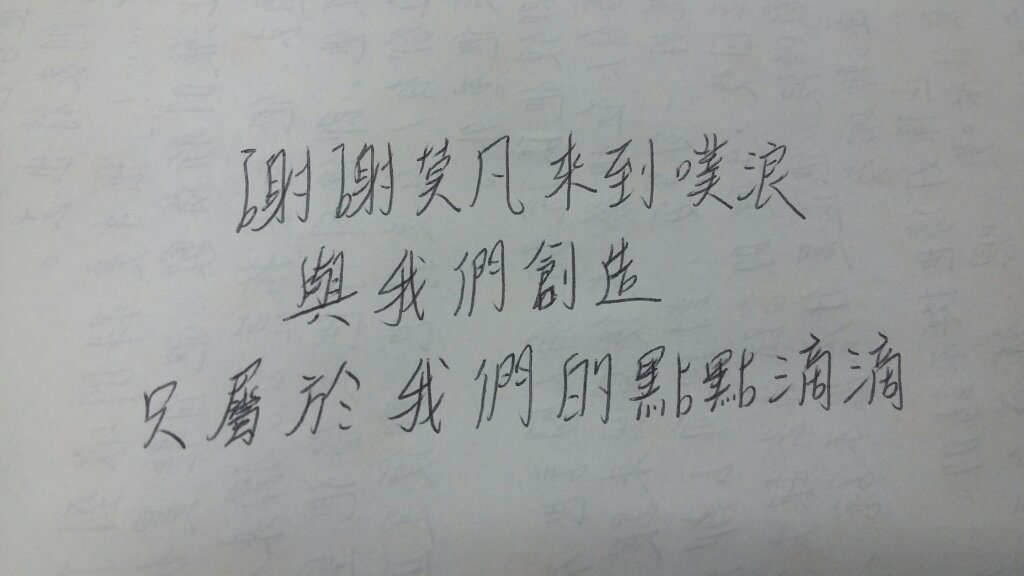 謝謝莫凡來到噗浪
與我們創造
只屬於我們的點點滴滴